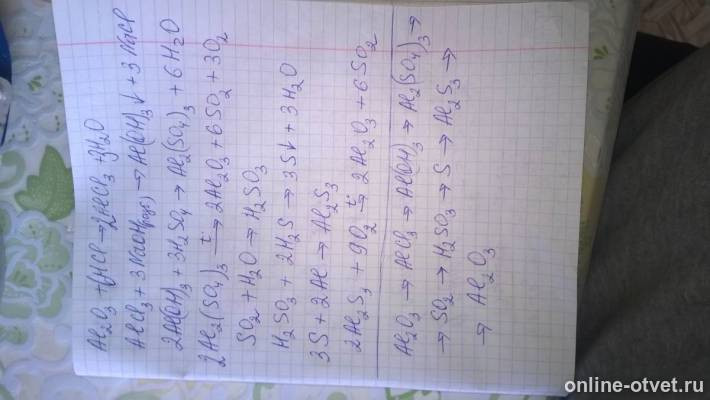 Al₂O₃ + 6HCl → 2AlCl₃ + 3H₂O
AlCl₃ + 3NaOH → Al(OH)₃↓ + 3NaCl
2Al(OH)₃ + 3H₂SO₄ → Al₂(SO₄)₃ + 6H₂O
2Al₂(SO₄)₃ —t→ 2Al₂O₃ + 6SO₂ + 3O₂
SO₂ + H₂O → H₂SO₃
H₂SO₃ + 2H₂S → 3S↓ + 3H₂O
3S + 2Al → Al₂S₃
2Al₂S₃ + 9O₂ —t→ 2Al₂O₃ + 6SO₂
Al₂O₃ → AlCl₃ → Al(OH)₃ → Al₂(SO₄)₃ →
→ SO₂ → H₂SO₃ → S → Al₂S₃ →
→ Al₂O₃
online-otvet.ru